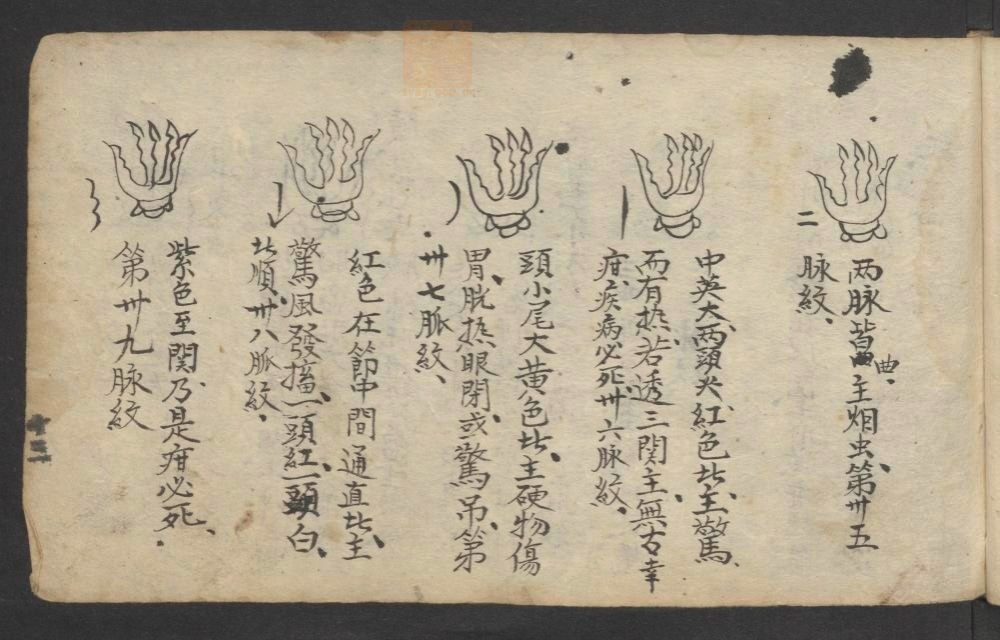 两脉皆曲、主烟虫、第卅五
脉紋、
中英大、两頭火紅色、此主驚、
而有热、若透三関、主無古幸
疳疾病必死、卅六脉紋、
頭小尾大黄色、此主硬物傷
胃、胱热眼閉、或驚吊、第
卅七脈紋、
紅色在節中間通直、此主
驚風發搐、一頭紅、一頭白、
此順、卅八脈紋、
紫色至関、乃是疳必死、
第卅九脉紋
十三